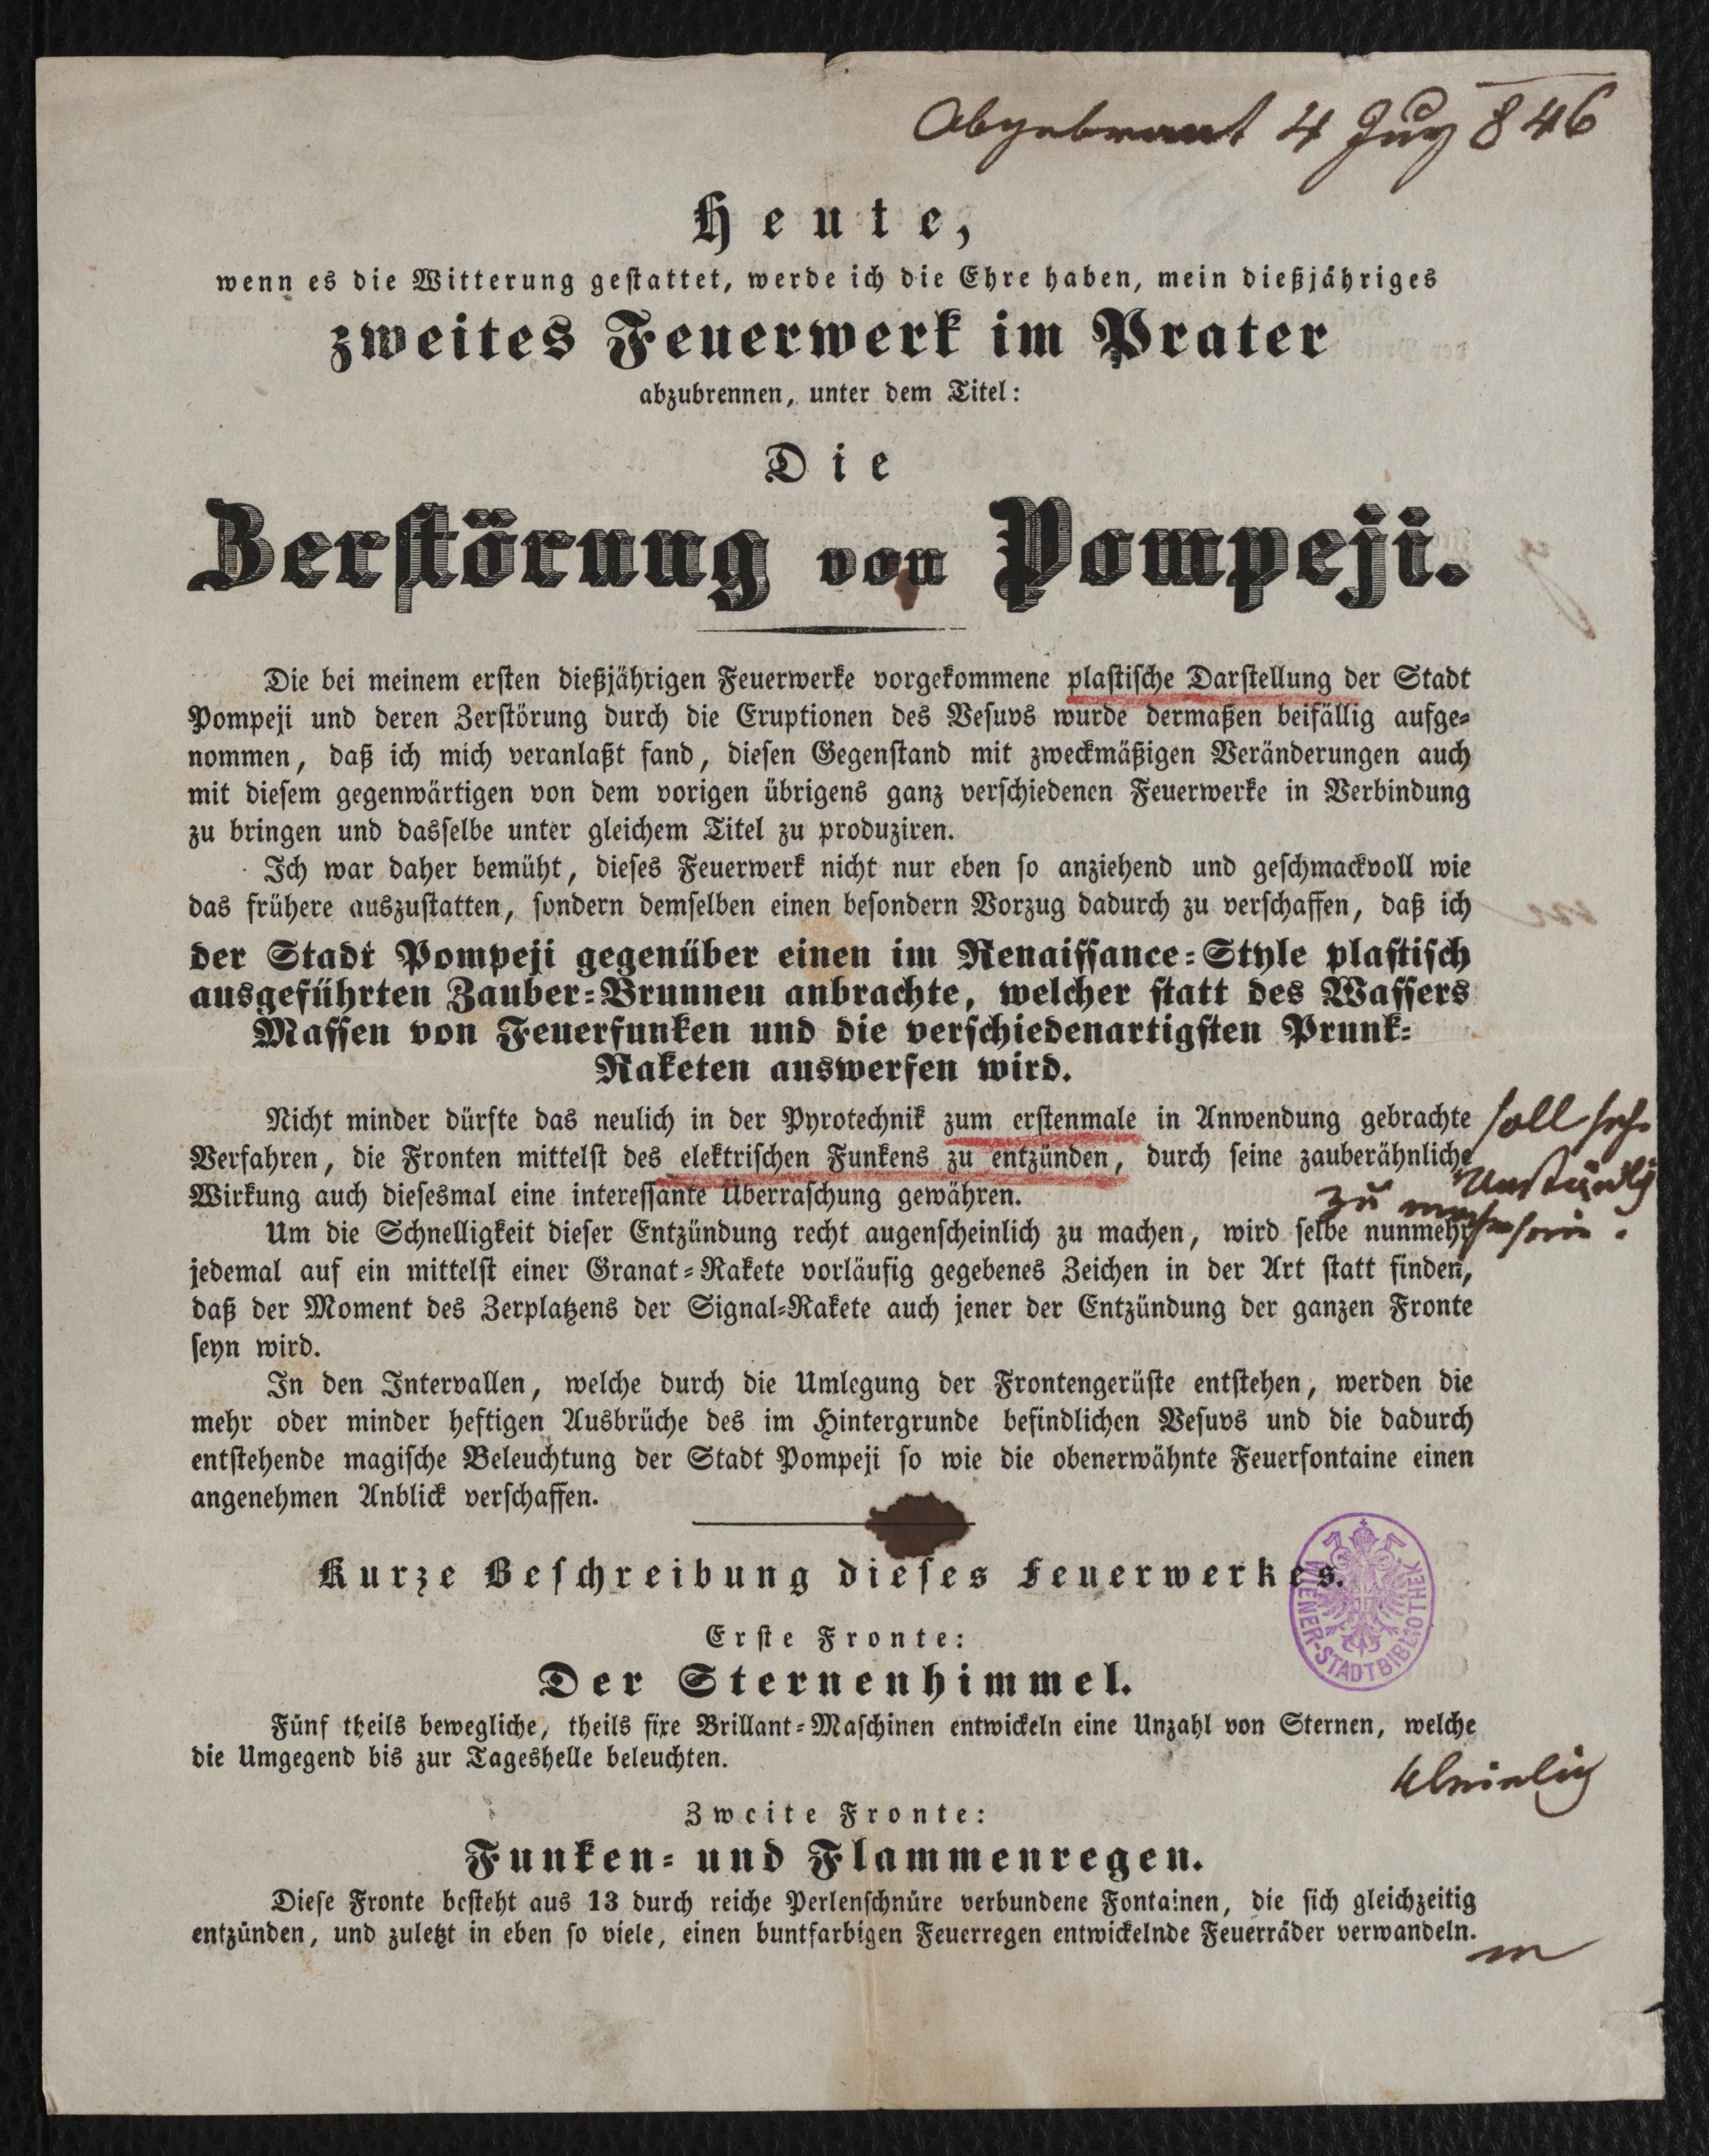 Abgebrant 4 July 846
Heute,
wenn es die Witterung gestattet, werde ich die Ehre haben, mein dießjähriges
zweites Feuerwerk im Prater
abzubrennen, unter dem Titel:
Die
Zerstörung von Pompeji.
Die bei meinem ersten dießjährigen Feuerwerke vorgekommene plastische Darstellung der Stadt
Pompeji und deren Zerstörung durch die Eruptionen des Vesuvs wurde dermaßen beifällig aufge-
nommen, daß ich mich veranlaßt fand, diesen Gegenstand mit zweckmäßigen Veränderungen auch
mit diesem gegenwärtigen von dem vorigen übrigens ganz verschiedenen Feuerwerke in Verbindung
zu bringen und dasselbe unter gleichem Titel zu produziren.
Ich war daher bemüht, dieses Feuerwerk nicht nur eben so anziehend und geschmackvoll wie
das frühere auszustatten, sondern demselben einen besondern Vorzug dadurch zu verschaffen, daß ich
der Stadt Pompeji gegenüber einen im Renaissance-Style plastisch
ausgeführten Zauber-Brunnen anbrachte, welcher statt des Wassers
Massen von Feuerfunken und die verschiedenartigsten Prunk-
Raketen auswerfen wird.
Nicht minder dürfte das neulich in der Pyrotechnik zum erstenmale in Anwendung gebrachte
Verfahren, die Fronten mittelst des elektrischen Funkens zu entzünden, durch seine zauberähnliche
Wirkung auch diesesmal eine interessante Überraschung gewähren.
soll sehr
Umständlich
zu machen sein.
Um die Schnelligkeit dieser Entzündung recht augenscheinlich zu machen, wird selbe nunmehr
jedemal auf ein mittelst einer Granat-Rakete vorläufig gegebenes Zeichen in der Art statt finden,
daß der Moment des Zerplatzens der Signal-Rakete auch jener der Entzündung der ganzen Fronte
seyn wird.
In den Intervallen, welche durch die Umlegung der Frontengerüste entstehen, werden die
mehr oder minder heftigen Ausbrüche des im Hintergrunde befindlichen Vesuvs und die dadurch
entstehende magische Beleuchtung der Stadt Pompeji so wie die obenerwähnte Feuerfontaine einen
angenehmen Anblick verschaffen.
Kurze Beschreibung dieses Feuerwerkes.
WIENER-STADTBIBLIOTHEK
Erste Fronte:
Der Sternenhimmel.
Fünf theils bewegliche, theils fixe Brillant-Maschinen entwickeln eine Unzahl von Sternen, welche
die Umgegend bis zur Tageshelle beleuchten.
kleinlich
Zweite Fronte:
Funken- und Flammenregen.
Diese Fronte besteht aus 13 durch reiche Perlenschnüre verbundene Fontainen, die sich gleichzeitig
entzünden, und zuletzt in eben so viele, einen buntfarbigen Feuerregen entwickelnde Feuerräder verwandeln.